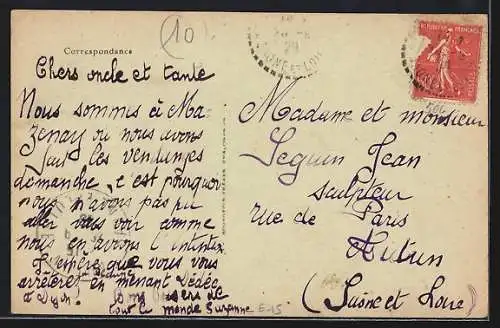 (10)
Correspondance
Chers oncle et tante
Nous sommes à Ma
zenay ou nous avons
fait les vendanges
dimanche, c'est pourquoi
nous n'avons pas pu
aller vous voir comme
nous en avions l'intention
J'espère que vous vous
arrêterez en menant Dédée
à Dijon. Bons baisers de
tout le monde Suzanne
E-15
29
SAONE-ET-LOIRE
REPUBLIQUE FRANÇAISE
POSTES
Madame et monsieur
Seguin Jean
sculpteur
rue de Paris
Autun
(Saône et Loire)